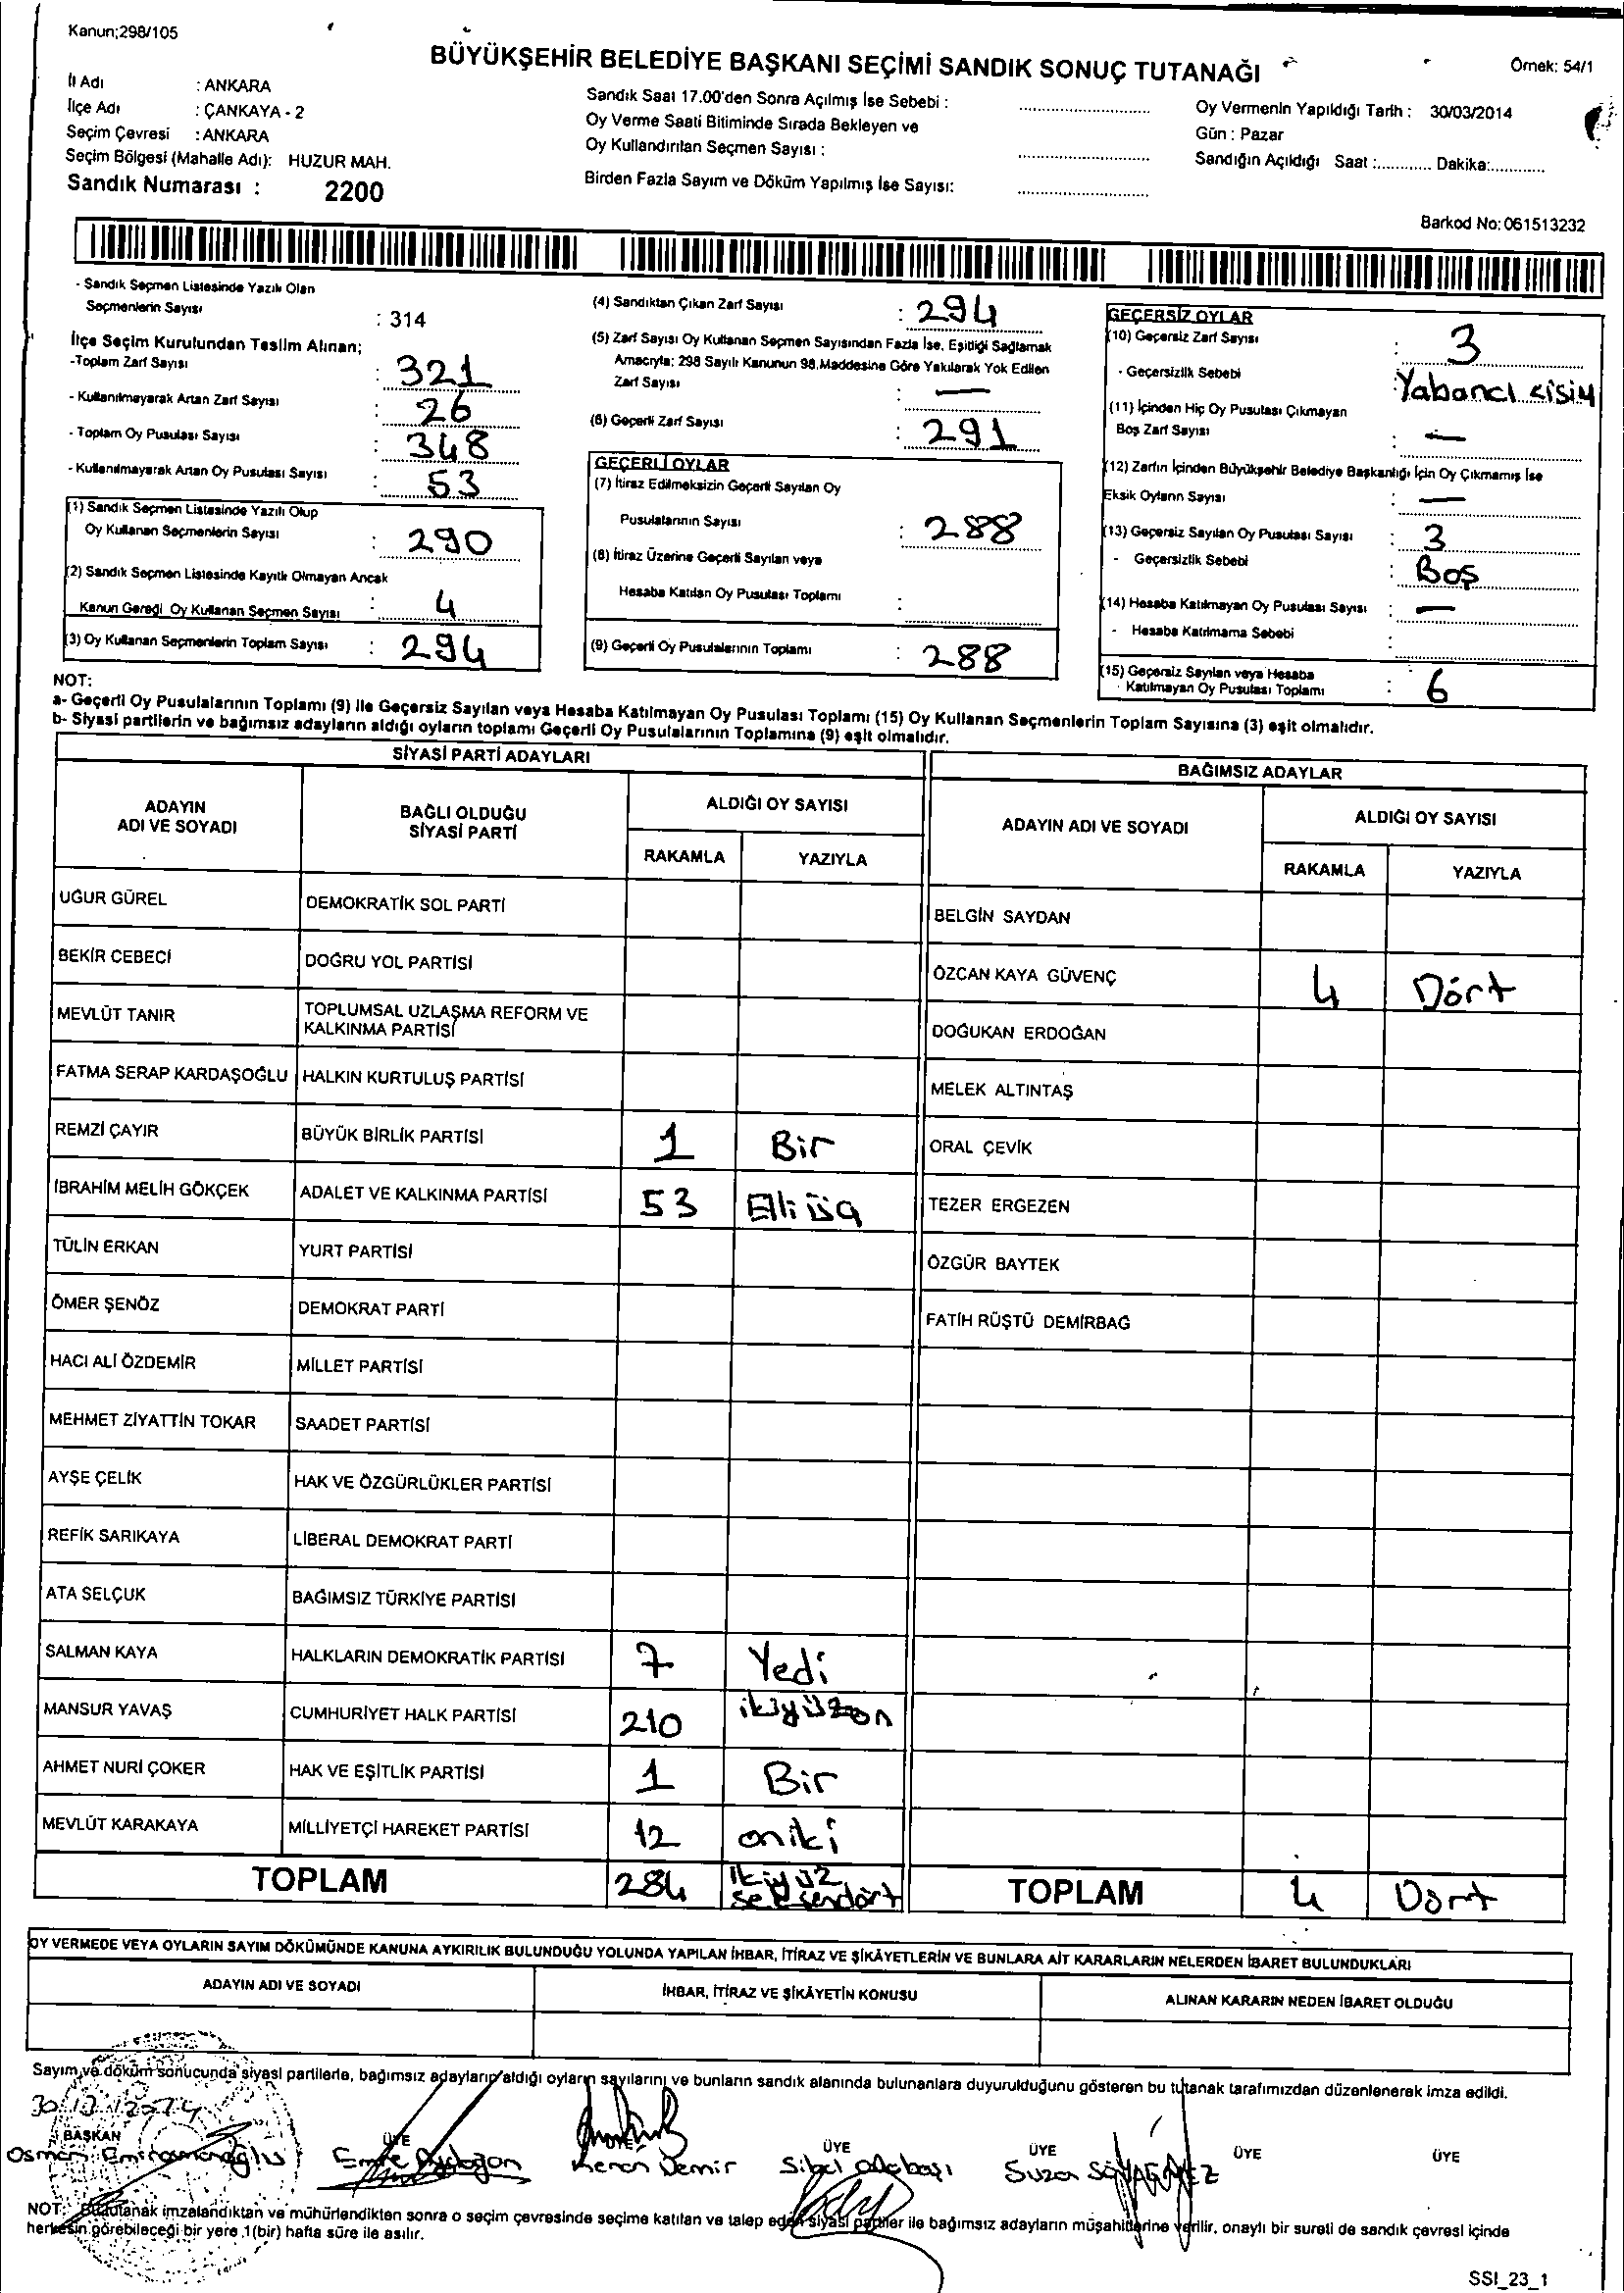 Kanun;298/105
BÜYÜKŞEHİR BELEDİYE BAŞKANI SEÇİMİ SANDIK SONUÇ TUTANAĞI
Örnek: 54/1
İl Adı : ANKARA
İlçe Adı : ÇANKAYA - 2
Seçim Çevresi : ANKARA
Seçim Bölgesi (Mahalle Adı): HUZUR MAH.
Sandık Numarası : 2200
Sandık Saat 17.00'den Sonra Açılmış İse Sebebi :
Oy Verme Saati Bitiminde Sırada Bekleyen ve
Oy Kullandırılan Seçmen Sayısı :
Birden Fazla Sayım ve Döküm Yapılmış İse Sayısı:
Oy Vermenin Yapıldığı Tarih : 30/03/2014
Gün : Pazar
Sandığın Açıldığı Saat :............ Dakika:............
Barkod No: 061513232
- Sandık Seçmen Listesinde Yazılı Olan
Seçmenlerin Sayısı : 314
İlçe Seçim Kurulundan Teslim Alınan;
-Toplam Zarf Sayısı : 321
- Kullanılmayarak Artan Zarf Sayısı : 26
- Toplam Oy Pusulası Sayısı : 348
- Kullanılmayarak Artan Oy Pusulası Sayısı : 53
(1) Sandık Seçmen Listesinde Yazılı Olup
Oy Kullanan Seçmenlerin Sayısı : 290
(2) Sandık Seçmen Listesinde Kayıtlı Olmayan Ancak
Kanun Gereği Oy Kullanan Seçmen Sayısı : 4
(3) Oy Kullanan Seçmenlerin Toplam Sayısı : 294
(4) Sandıktan Çıkan Zarf Sayısı : 294
(5) Zarf Sayısı Oy Kullanan Seçmen Sayısından Fazla İse, Eşitliği Sağlamak
Amacıyla; 298 Sayılı Kanunun 98.Maddesine Göre Yakılarak Yok Edilen
Zarf Sayısı : —
(6) Geçerli Zarf Sayısı : 291
GEÇERLİ OYLAR
(7) İtiraz Edilmeksizin Geçerli Sayılan Oy
Pusulalarının Sayısı : 288
(8) İtiraz Üzerine Geçerli Sayılan veya
Hesaba Katılan Oy Pusulası Toplamı :
(9) Geçerli Oy Pusulalarının Toplamı : 288
GEÇERSİZ OYLAR
(10) Geçersiz Zarf Sayısı : 3
- Geçersizlik Sebebi : Yabancı
(11) İçinden Hiç Oy Pusulası Çıkmayan
Boş Zarf Sayısı : —
(12) Zarfın İçinden Büyükşehir Belediye Başkanlığı İçin Oy Çıkmamış İse
Eksik Oyların Sayısı : —
(13) Geçersiz Sayılan Oy Pusulası Sayısı : 3
- Geçersizlik Sebebi : Boş
(14) Hesaba Katılmayan Oy Pusulası Sayısı : —
- Hesaba Katılmama Sebebi :
(15) Geçersiz Sayılan veya Hesaba
Katılmayan Oy Pusulası Toplamı : 6
NOT:
a- Geçerli Oy Pusulalarının Toplamı (9) ile Geçersiz Sayılan veya Hesaba Katılmayan Oy Pusulası Toplamı (15) Oy Kullanan Seçmenlerin Toplam Sayısına (3) eşit olmalıdır.
b- Siyasi partilerin ve bağımsız adayların aldığı oyların toplamı Geçerli Oy Pusulalarının Toplamına (9) eşit olmalıdır.
SİYASİ PARTİ ADAYLARI
ADAYIN ADI VE SOYADI BAĞLI OLDUĞU SİYASİ PARTİ ALDIĞI OY SAYISI
RAKAMLA YAZIYLA
UĞUR GÜREL DEMOKRATİK SOL PARTİ
BEKİR CEBECİ DOĞRU YOL PARTİSİ
MEVLÜT TANIR TOPLUMSAL UZLAŞMA REFORM VE
KALKINMA PARTİSİ
FATMA SERAP KARDAŞOĞLU HALKIN KURTULUŞ PARTİSİ
REMZİ ÇAYIR BÜYÜK BİRLİK PARTİSİ 1 Bir
İBRAHİM MELİH GÖKÇEK ADALET VE KALKINMA PARTİSİ 53 Elli üç
TÜLİN ERKAN YURT PARTİSİ
ÖMER ŞENÖZ DEMOKRAT PARTİ
HACI ALİ ÖZDEMİR MİLLET PARTİSİ
MEHMET ZİYATTİN TOKAR SAADET PARTİSİ
AYŞE ÇELİK HAK VE ÖZGÜRLÜKLER PARTİSİ
REFİK SARIKAYA LİBERAL DEMOKRAT PARTİ
ATA SELÇUK BAĞIMSIZ TÜRKİYE PARTİSİ
SALMAN KAYA HALKLARIN DEMOKRATİK PARTİSİ 7 Yedi
MANSUR YAVAŞ CUMHURİYET HALK PARTİSİ 210 ikiyüzon
AHMET NURİ ÇOKER HAK VE EŞİTLİK PARTİSİ 1 Bir
MEVLÜT KARAKAYA MİLLİYETÇİ HAREKET PARTİSİ 12 oniki
TOPLAM 284 ikiyüz
seksendört
BAĞIMSIZ ADAYLAR
ADAYIN ADI VE SOYADI ALDIĞI OY SAYISI
RAKAMLA YAZIYLA
BELGİN SAYDAN
ÖZCAN KAYA GÜVENÇ 4 Dört
DOĞUKAN ERDOĞAN
MELEK ALTINTAŞ
ORAL ÇEVİK
TEZER ERGEZEN
ÖZGÜR BAYTEK
FATİH RÜŞTÜ DEMİRBAĞ
TOPLAM 4 Dört
OY VERMEDE VEYA OYLARIN SAYIM DÖKÜMÜNDE KANUNA AYKIRILIK BULUNDUĞU YOLUNDA YAPILAN İHBAR, İTİRAZ VE ŞİKÂYETLERİN VE BUNLARA AİT KARARLARIN NELERDEN İBARET BULUNDUKLARI
ADAYIN ADI VE SOYADI İHBAR, İTİRAZ VE ŞİKÂYETİN KONUSU ALINAN KARARIN NEDEN İBARET OLDUĞU
Sayım ve döküm sonucunda siyasi partilerle, bağımsız adayların aldığı oyların sayılarını ve bunların sandık alanında bulunanlara duyurulduğunu gösteren bu tutanak tarafımızdan düzenlenerek imza edildi.
BAŞKAN ÜYE ÜYE ÜYE ÜYE ÜYE ÜYE
Osman Emre Kenan Demir Sibel Suzan
NOT: Bu tutanak imzalandıktan ve mühürlendikten sonra o seçim çevresinde seçime katılan ve talep eden siyasi partiler ile bağımsız adayların müşahitlerine verilir, onaylı bir sureti de sandık çevresi içinde
herkesin görebileceği bir yere 1(bir) hafta süre ile asılır.
SSI_23_1